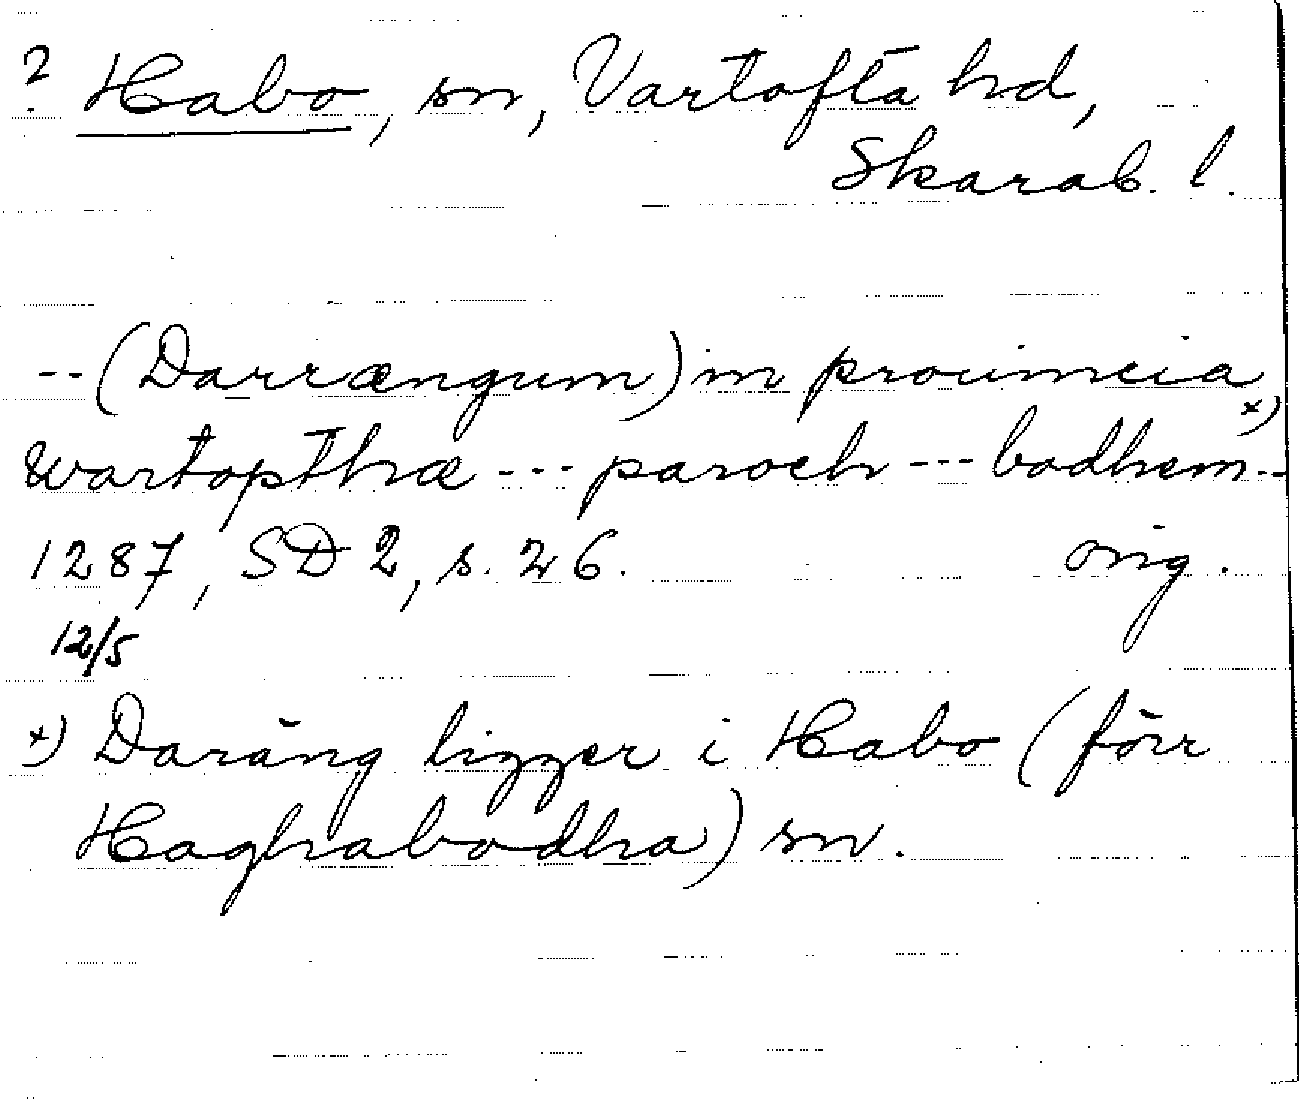 ? Habo, sn, Vartofta hd,
Skarab. l.
-- (Darrængum) in prouincia
wartopthæ --- paroch --- bodhem x) --
1287, SD 2, s. 26. orig.
12/5
x) Daräng ligger i Habo (förr
Haghabodha) sn.